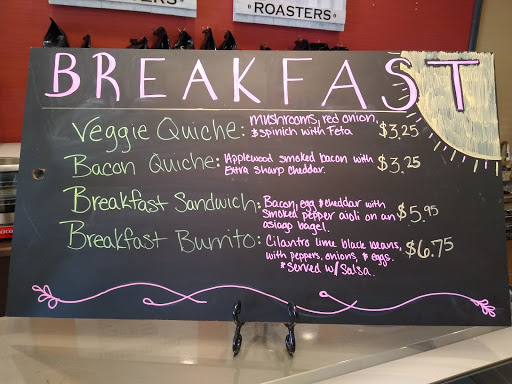 ROASTERS
ROASTERS
BREAKFAST
Veggie Quiche: mushrooms, red onion, $3.25
& spinich with Feta
Bacon Quiche: Applewood smoked bacon with $3.25
Extra sharp cheddar.
Breakfast Sandwich: Bacon, egg & cheddar with $5.95
smoked pepper aioli on an
asiago bagel.
Breakfast Burrito: Cilantro lime black beans, $6.75
with peppers, onions, & eggs.
* served w/ Salsa.